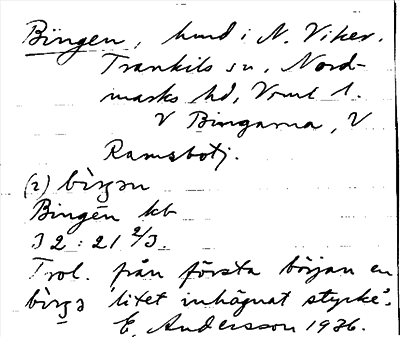 Bingen, hmd i N. Viker.
Trankils sn, Nord-
marks hd, Vrml l.
V Bingarna, V
Ramsbotj.
(2) bìŋən
Bingen kb
32:21 2/3.
Trol. från första början en
bìŋə 'litet inhägnat stycke'.
E. Andersson 1936.